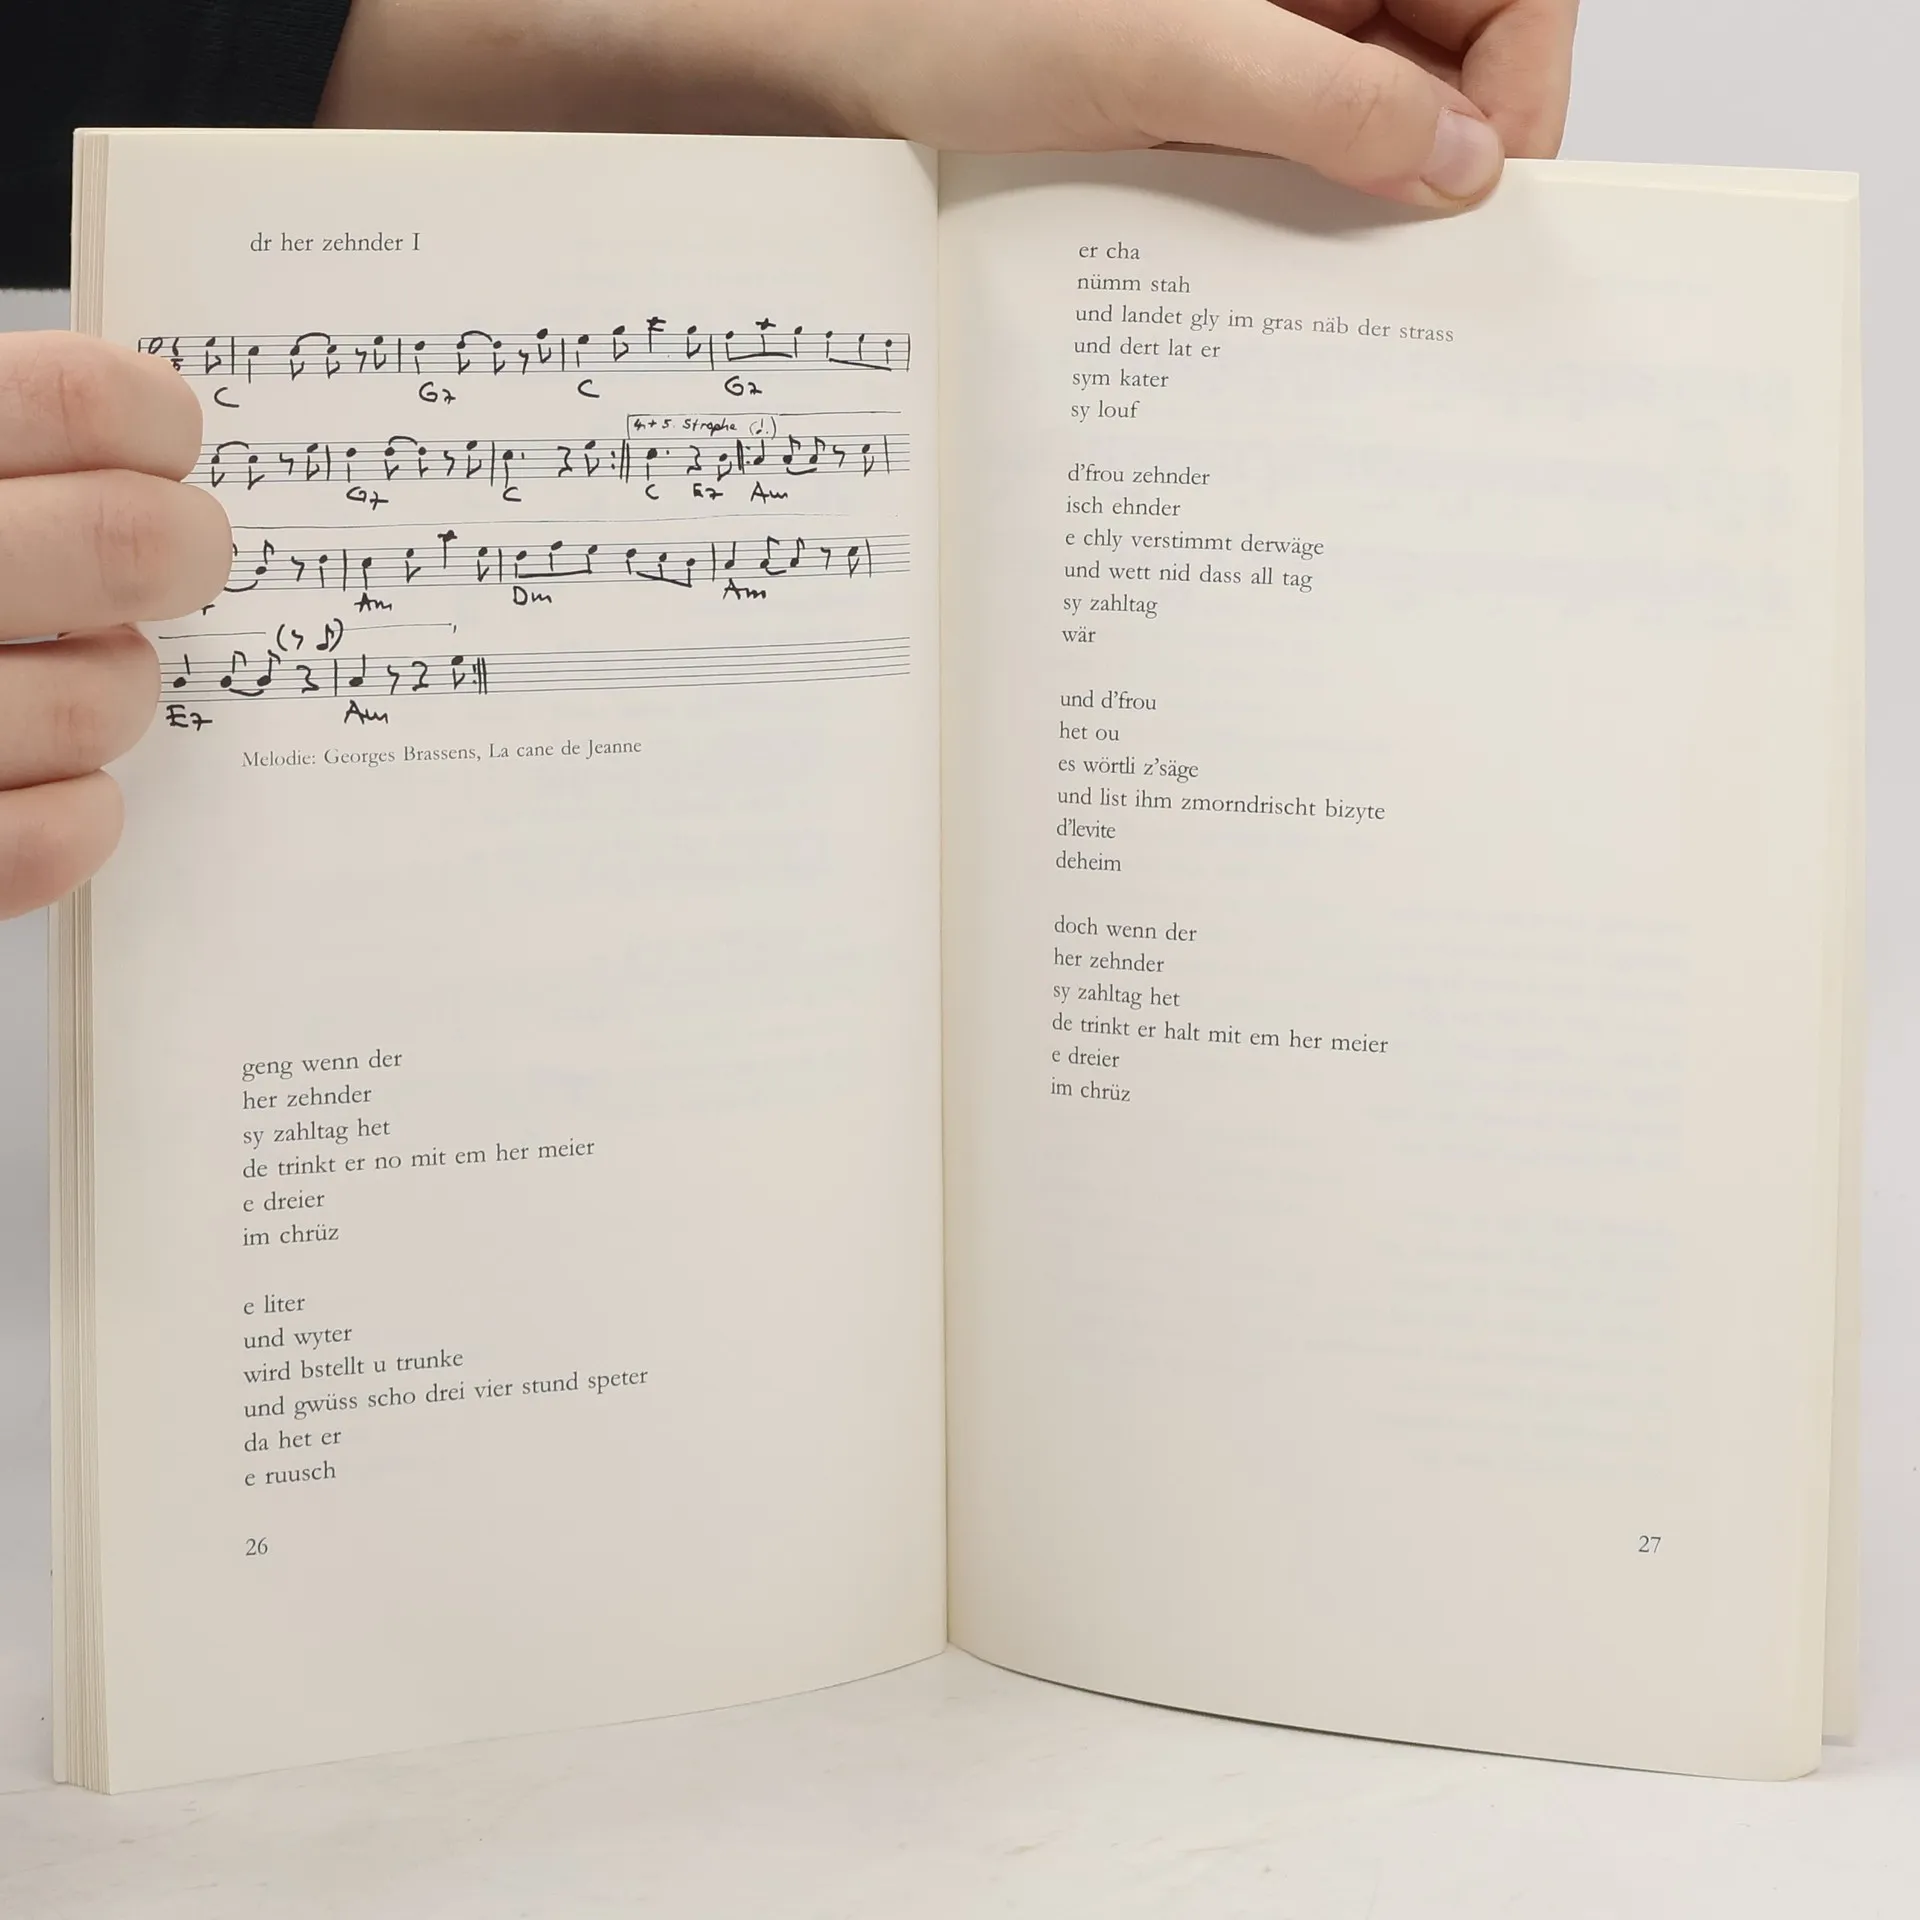 dr her zehnder I
C G7 C G7
4.+5. Strophe
G7 C C E7 Am
Am Dm Am
E7 Am
Melodie: Georges Brassens, La cane de Jeanne
geng wenn der
her zehnder
sy zahltag het
de trinkt er no mit em her meier
e dreier
im chrüz
e liter
und wyter
wird bstellt u trunke
und gwüss scho drei vier stund speter
da het er
e ruusch
26
er cha
nümm stah
und landet gly im gras näb der strass
und dert lat er
sym kater
sy louf
d'frou zehnder
isch ehnder
e chly verstimmt derwäge
und wett nid dass all tag
sy zahltag
wär
und d'frou
het ou
es wörtli z'säge
und list ihm zmorndrischt bizyte
d'levite
deheim
doch wenn der
her zehnder
sy zahltag het
de trinkt er halt mit em her meier
e dreier
im chrüz
27